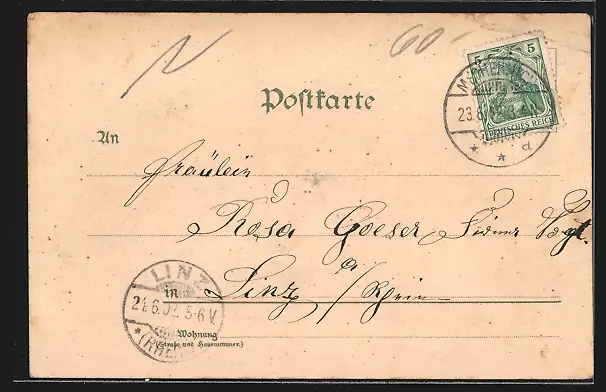 N 60-
5 5
DEUTSCHES REICH
23.6.
d
Postkarte
An
Fräulein
Rosa Goeser
LINZ
in Linz a/Rhein
24.6.02. 5-6 V.
(RHEIN)
Wohnung
(Straße und Hausnummer.)